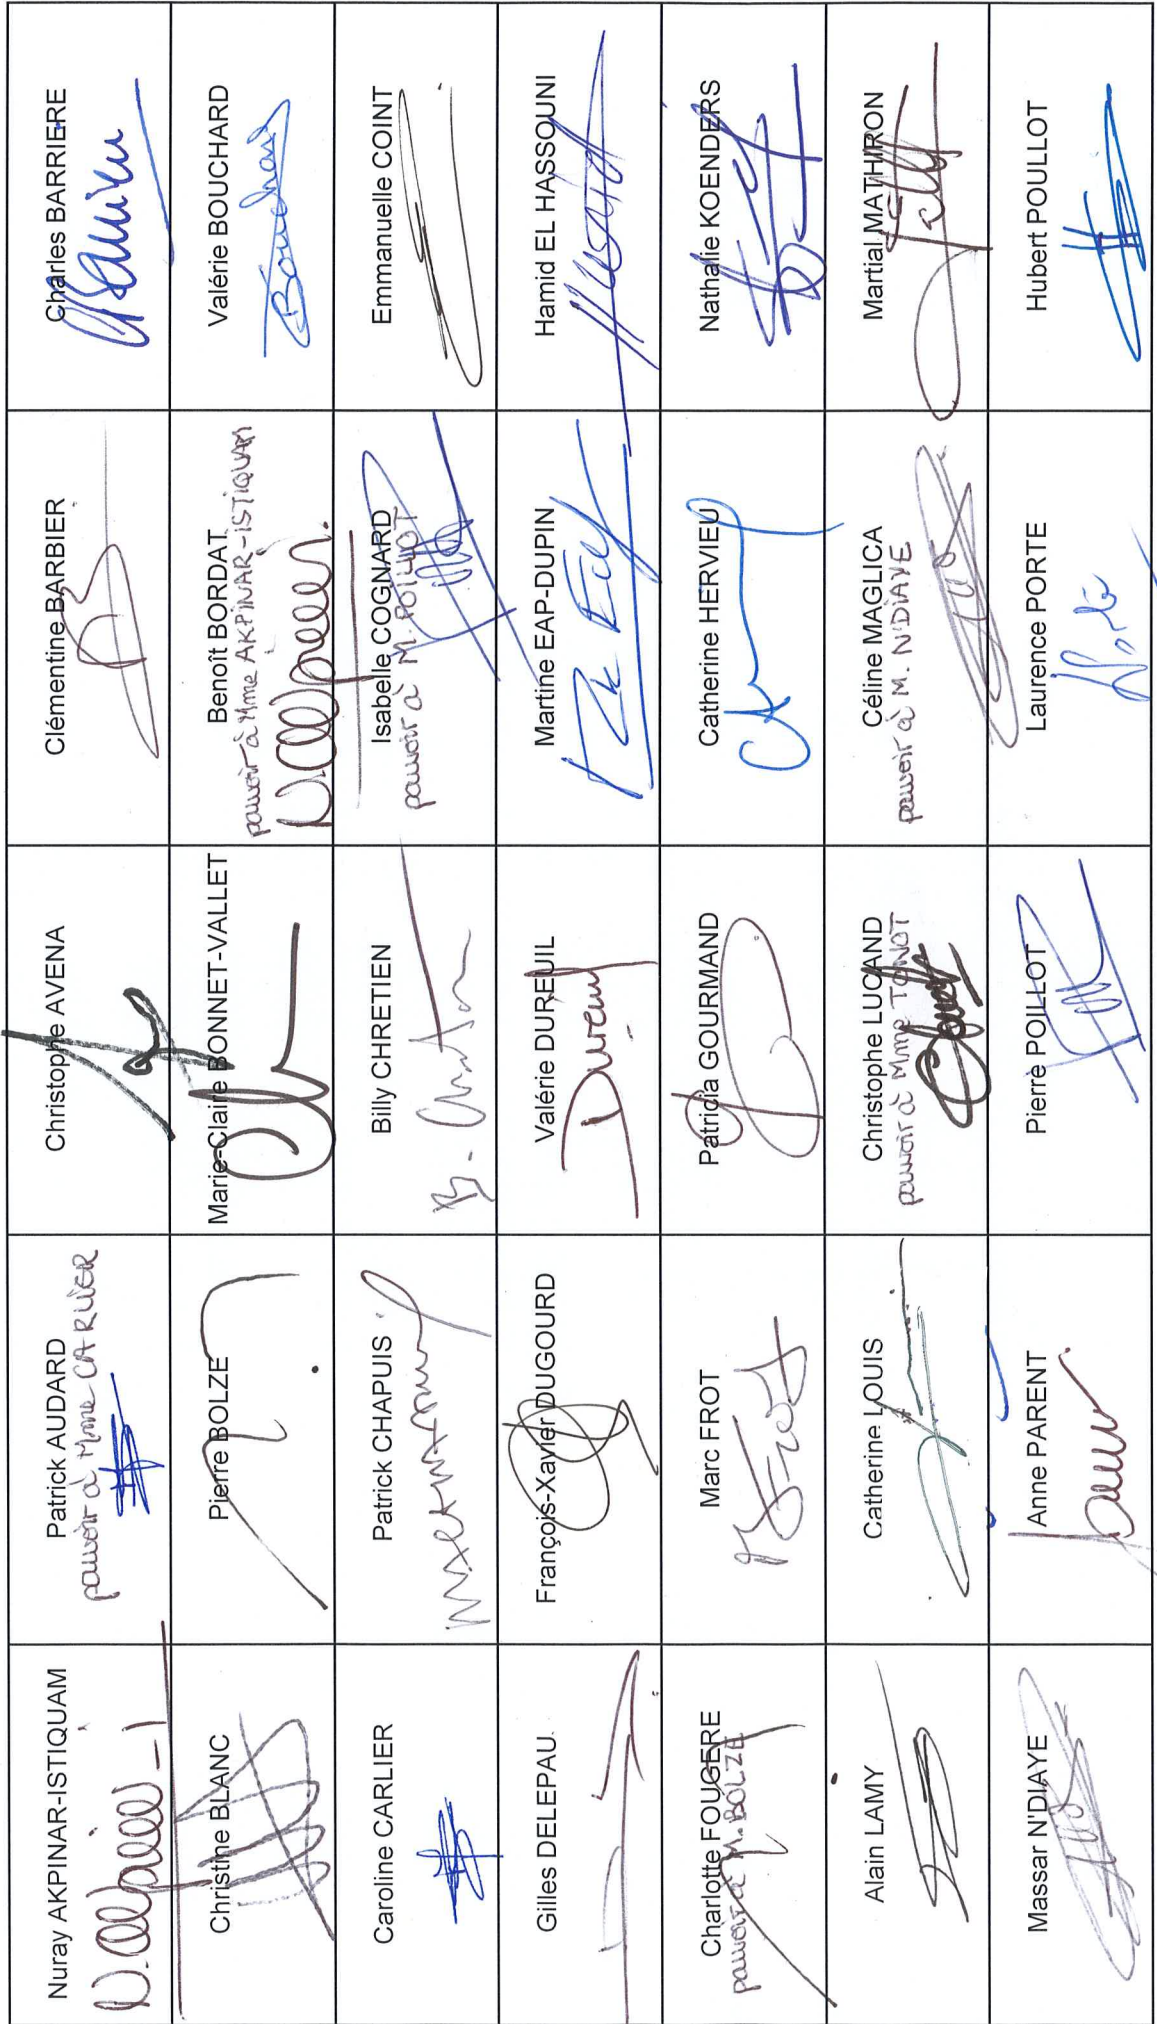 Nuray AKPINAR-ISTIQUAM
Patrick AUDARD
pouvoir à Mme CARLIER
Christophe AVENA
Clémentine BARBIER
Charles BARRIERE
Christine BLANC
Pierre BOLZE
Marie-Claire BONNET-VALLET
Benoît BORDAT
pouvoir à Mme AKPINAR-ISTIQUAM
Valérie BOUCHARD
Bouchard
Caroline CARLIER
Patrick CHAPUIS
Billy CHRETIEN
Isabelle COGNARD
pouvoir à M. POILLOT
Emmanuelle COINT
Gilles DELEPAU
François-Xavier DUGOURD
Valérie DUREUIL
Dureuil
Martine EAP-DUPIN
Hamid EL HASSOUNI
Charlotte FOUGERE
pouvoir à M. BOLZE
Marc FROT
Patricia GOURMAND
Catherine HERVIEU
Nathalie KOENDERS
Alain LAMY
Catherine LOUIS
Christophe LUCAND
pouvoir à Mme TONOT
Céline MAGLICA
pouvoir à M. N'DIAYE
Martial MATHIRON
Massar N'DIAYE
Anne PARENT
Pierre POILLOT
Laurence PORTE
Hubert POULLOT